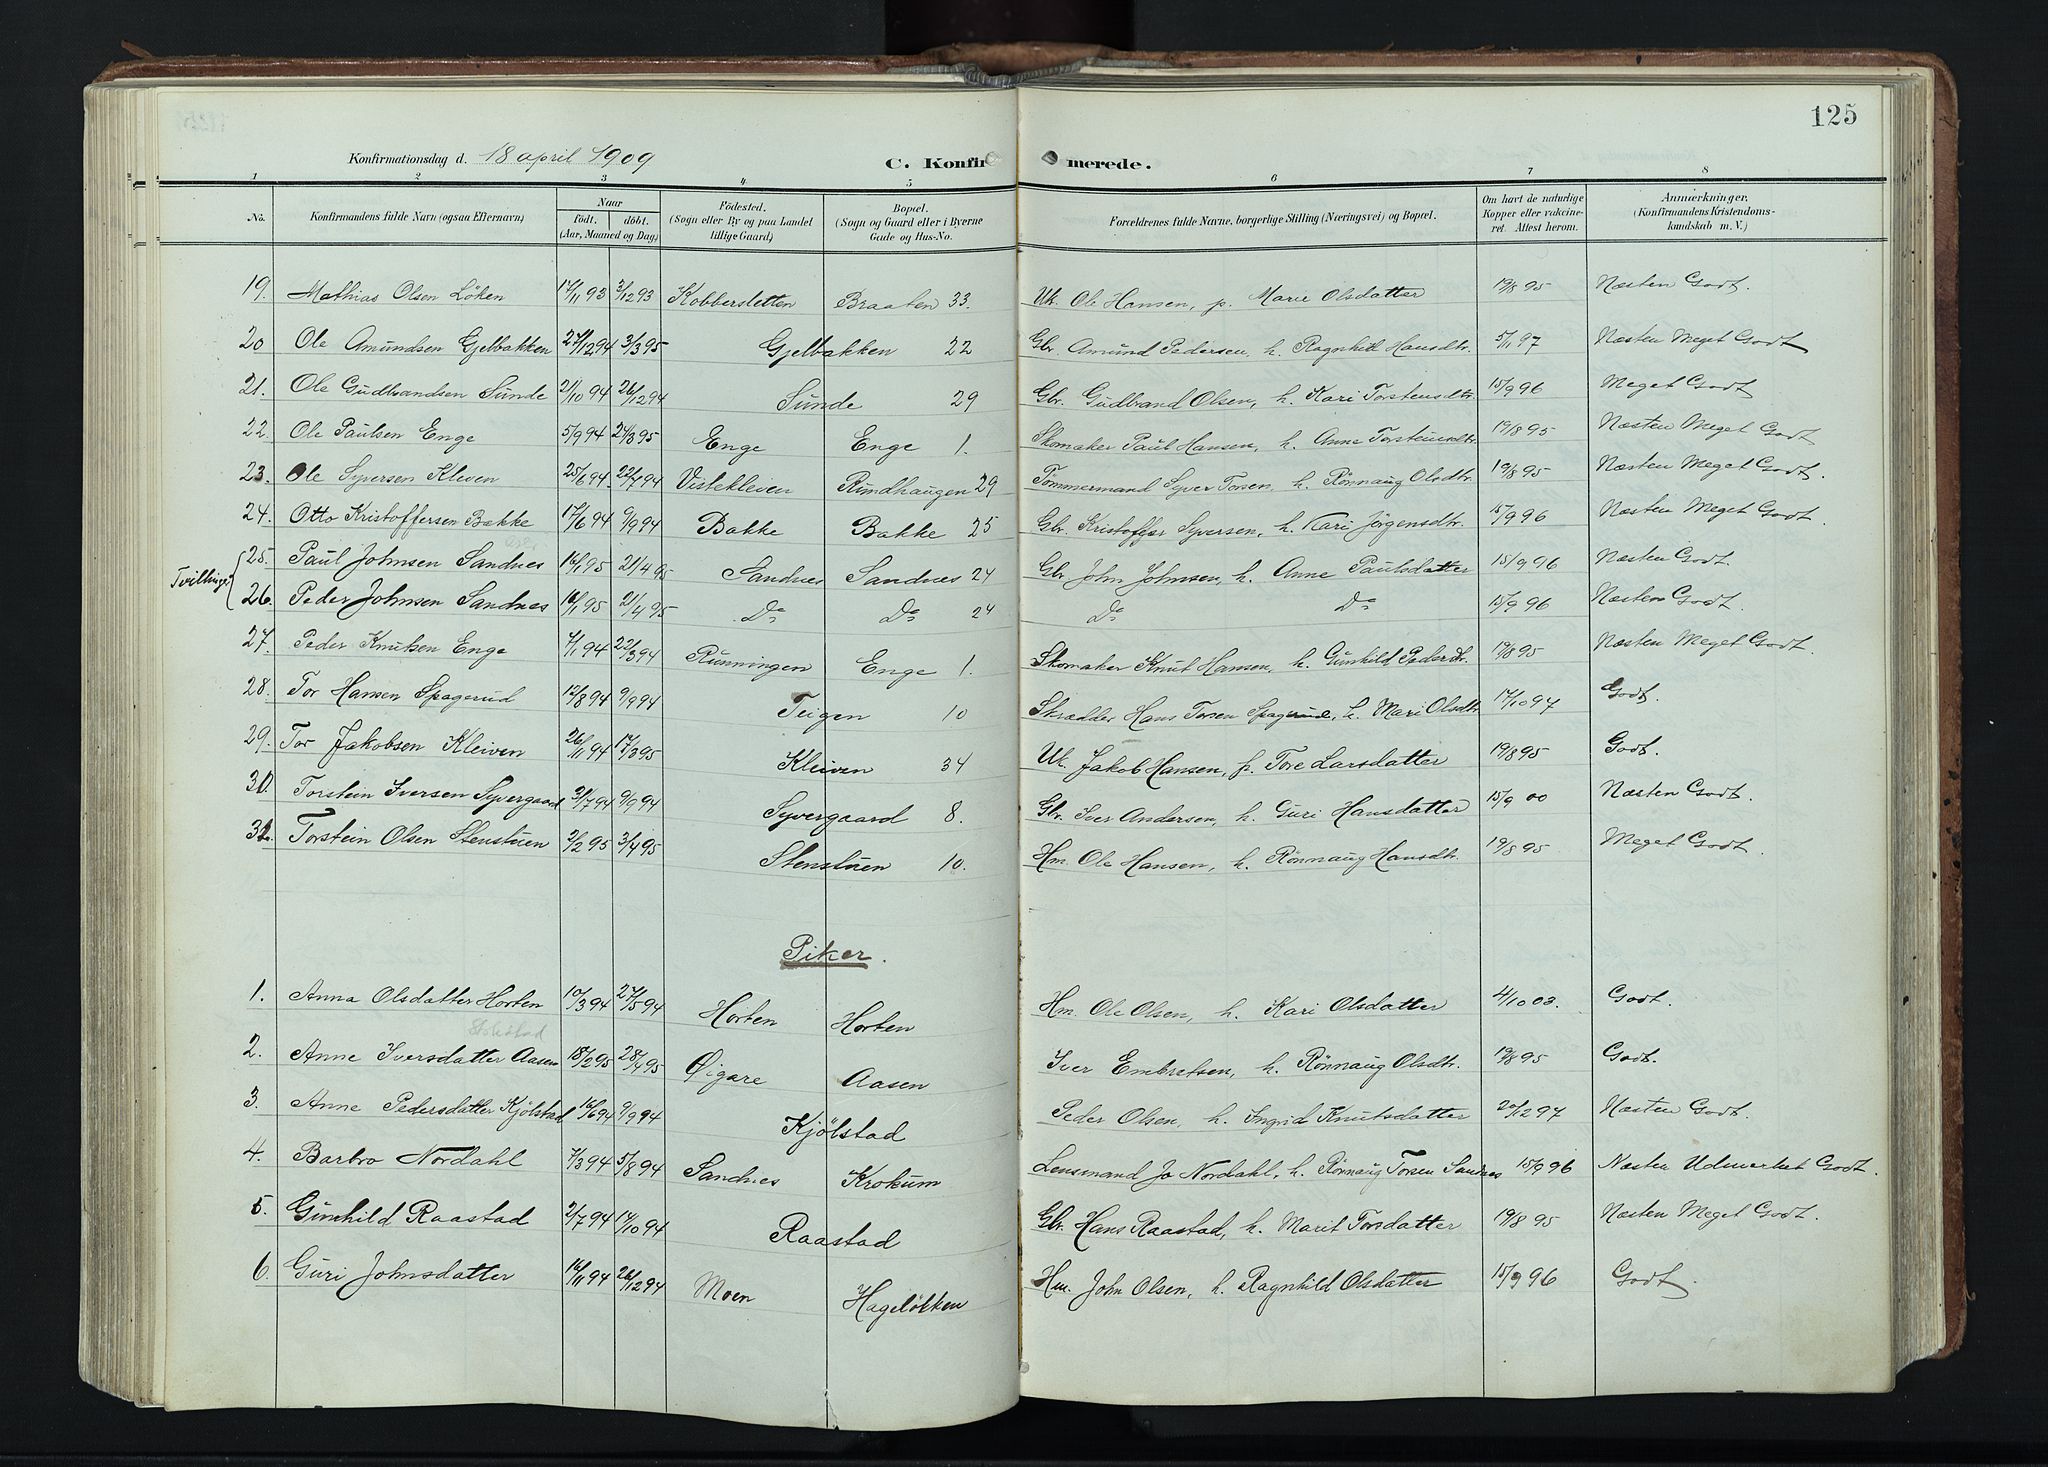 125
Konfirmationsdag d. 18 april 1909 C. Konfirmerede.
1 2 3 4 5 6 7 8
No. Konfirmandens fulde Navn (ogsaa Efternavn) Naar födt. döbt. (Aar, Maaned og Dag) Födested. (Sogn eller By og paa Landet tillige Gaard) Bopæl. (Sogn og Gaard eller i Byerne Gade og Hus-No. Forældrenes fulde Navne, borgerlige Stilling (Næringsvei) og Bopæl. Om havt de naturlige Kopper eller vakcineret. Attest herom. Anmærkninger. (Konfirmandens Kristendomskundskab m. V.)
19. Mathias Olsen Löken 17/11 93 3/12 93 Kobbersletten Braaten 33. Uk. Ole Hansen, p. Marie Olsdatter 19/8 95 Næsten Godt.
20 Ole Amundsen Gjelbakken 27/12 94 3/3 95 Gjelbakken 22 Gbr. Amund Pedersen, h. Ragnhild Hansdtr. 5/11 97 Næsten Meget Godt
21. Ole Gudbrandsen Sunde 21/10 94 26/12 94 Sunde 29 Gbr. Gudbrand Olsen, h. Kari Torstensdtr. 15/9 96 Meget Godt
22. Ole Paulsen Enge 5/9 94 24/3 95 Enge Enge 1. Skomaker Paul Hansen, h. Anne Torsteinsdtr. 19/8 95 Næsten Meget Godt
23. Ole Syversen Kleven 25/6 94 22/7 94 Vistekleven Rundhaugen 29 Tömmermand Syver Torsen, h. Rönnaug Olsdtr. 19/8 95 Næsten Meget Godt.
24. Otto Kristoffersen Bakke 17/6 94 9/9 94 Bakke Bakke 25 Gbr. Kristoffer Syversen, h. Kari Jörgensdtr. 15/9 96 Næsten Meget Godt.
Tvillinger
25. Paul Johnsen Sandnes 16/1 95 21/4 95 Sandnes Sandnes 24 Gbr John Johnsen, h. Anne Paulsdatter 15/9 96 Næsten Godt.
26. Peder Johnsen Sandnes 16/1 95 21/4 95 Do Do 24 Do Do 15/9 96 Næsten Godt.
27. Peder Knutsen Enge 7/1 94 22/3 94 Runningen Enge 1. Skomaker Knut Hansen, h. Gunhild Pedersdtr. 19/8 95 Næsten Meget Godt.
28. Tor Hansen Spagerud 12/8 94 9/9 94 Teigen 10 Skrædder Hans Torsen Spagerud, h. Mari Olsdtr 17/10 97 Godt.
29. Tor Jakobsen Kleiven 26/11 94 17/3 95 Kleiven 34 Uk. Jakob Hansen, p. Tore Larsdatter 19/8 95 Godt.
30. Torstein Iversen Syvergaard 31/7 94 9/9 94 Syvergaard 8. Gbr. Iver Andersen, h. Guri Hansdatter 15/9 00 Næsten Godt.
31. Torstein Olsen Stenstuen 2/2 95 3/4 95 Stenstuen 10. Hm. Ole Hansen, h. Rönnaug Hansdtr. 19/8 95 Meget Godt.
Piker.
1. Anna Olsdatter Horten 10/3 94 27/5 94 Horten Horten Hm. Ole Olsen, h. Kari Olsdatter 4/10 03. Godt.
2. Anne Iversdatter Aasen 18/2 95 28/4 95 Øigare Aasen Iver Embretsen, h. Rønnaug Olsdtr. 19/8 95 Godt.
3. Anne Pedersdatter Kjölstad 16/6 94 9/9 94 Kjölstad Peder Olsen, h. Ingrid Knutsdatter 20/12 97 Næsten Godt.
4. Barbro Nordahl 7/3 94 5/8 94 Sandnes Krokum Lensmand Jo Nordahl, h. Rönnaug Torsen Sandnes 15/9 96 Næsten Udmerket Godt.
5. Gunhild Raastad 2/7 94 14/10 94 Raastad Gbr. Hans Raastad, h. Marit Torsdatter 19/8 95 Næsten Meget Godt.
6. Guri Johnsdatter 16/11 94 26/12 94 Moen Hagelökken Hm. John Olsen, h. Ragnhild Olsdatter 15/9 96 Godt.